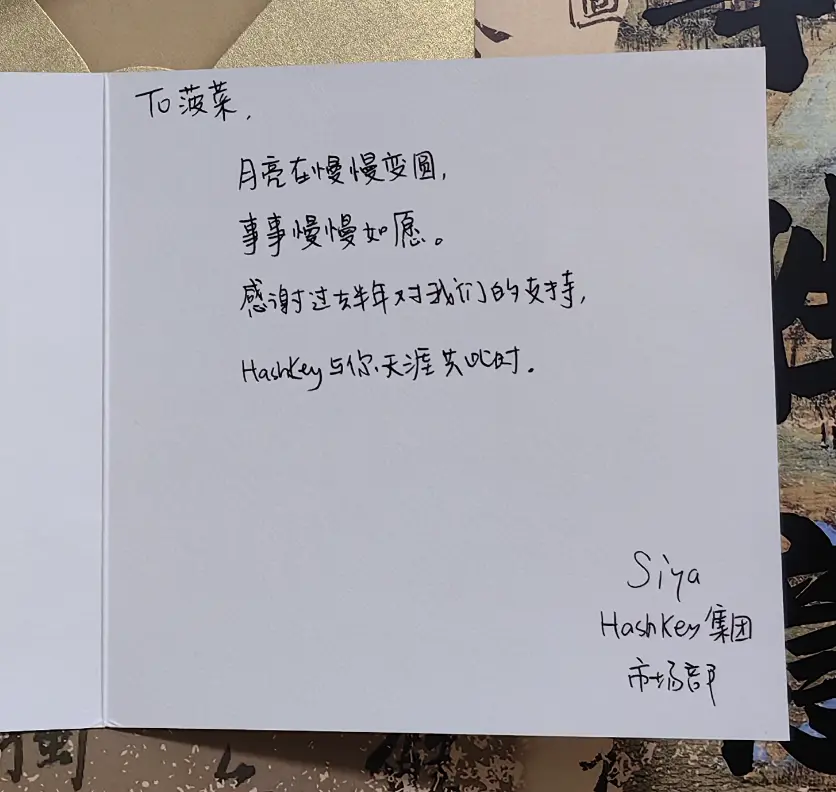 To 菠菜,
月亮在慢慢变圆,
事事慢慢如愿。
感谢过去半年对我们的支持,
HashKey与你天涯共此时.
Siya
HashKey集团
市场部